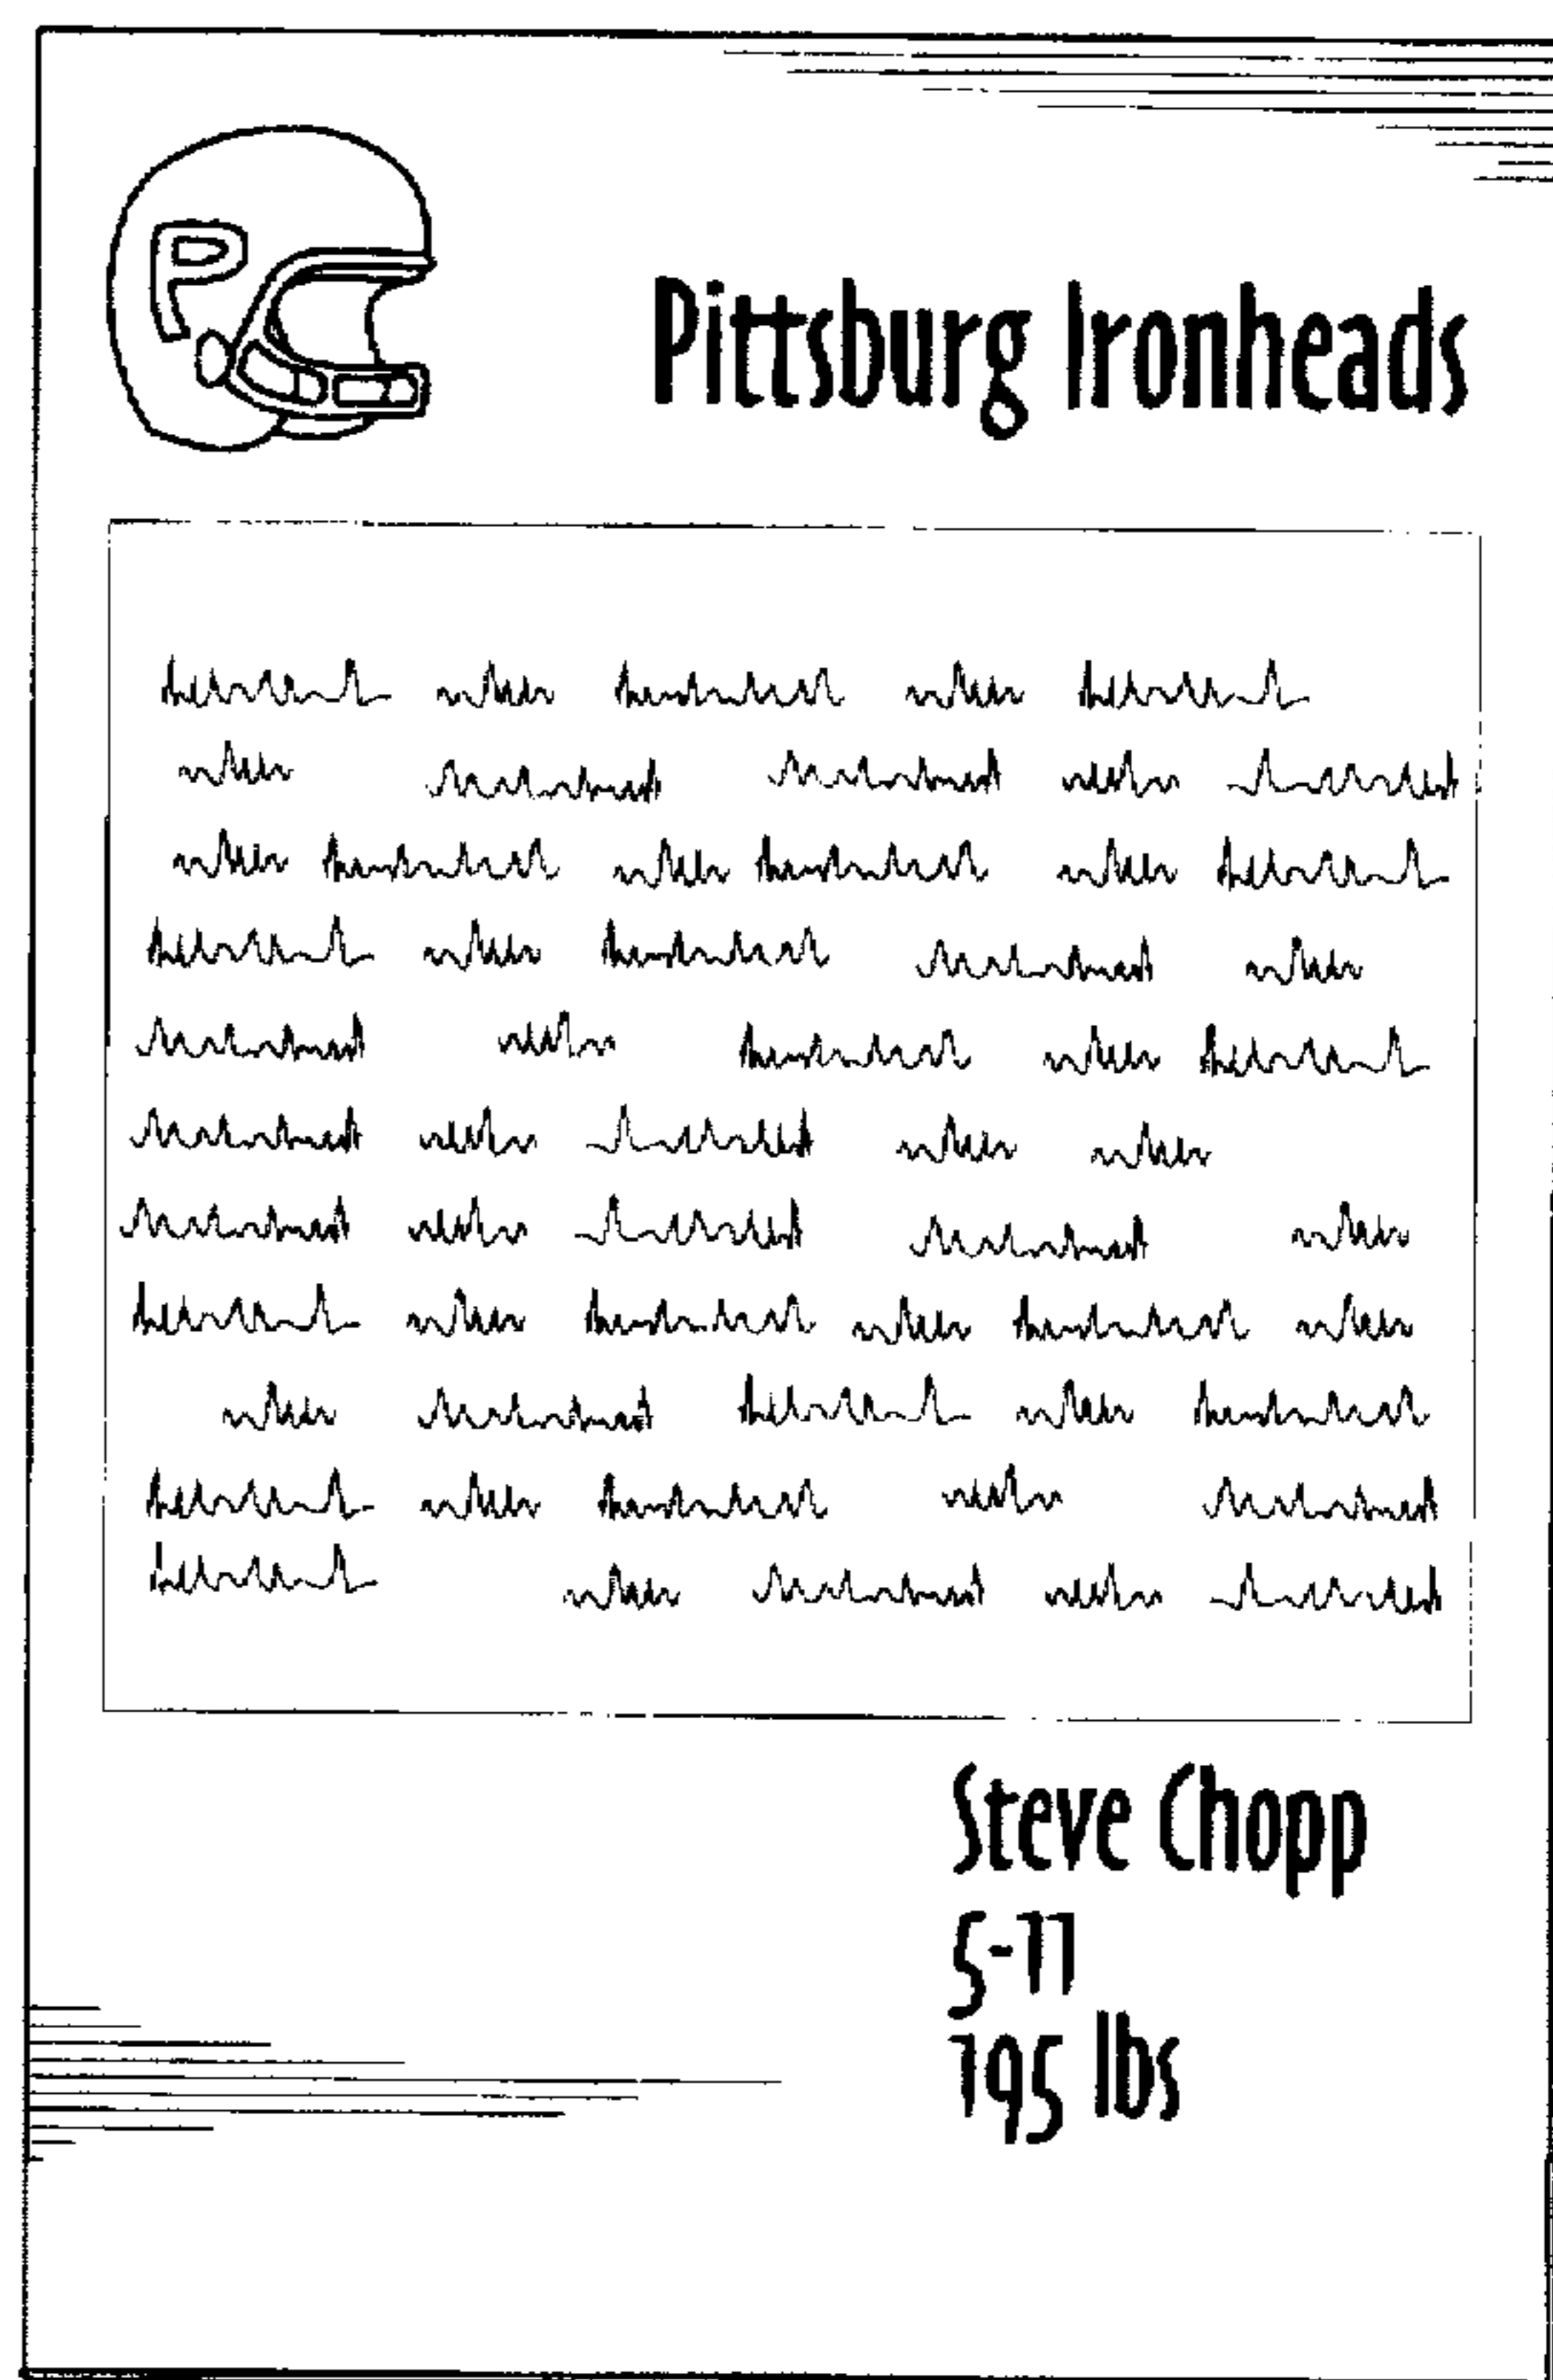 P
Pittsburg Ironheads
Steve Chopp
5-11
195 lbs